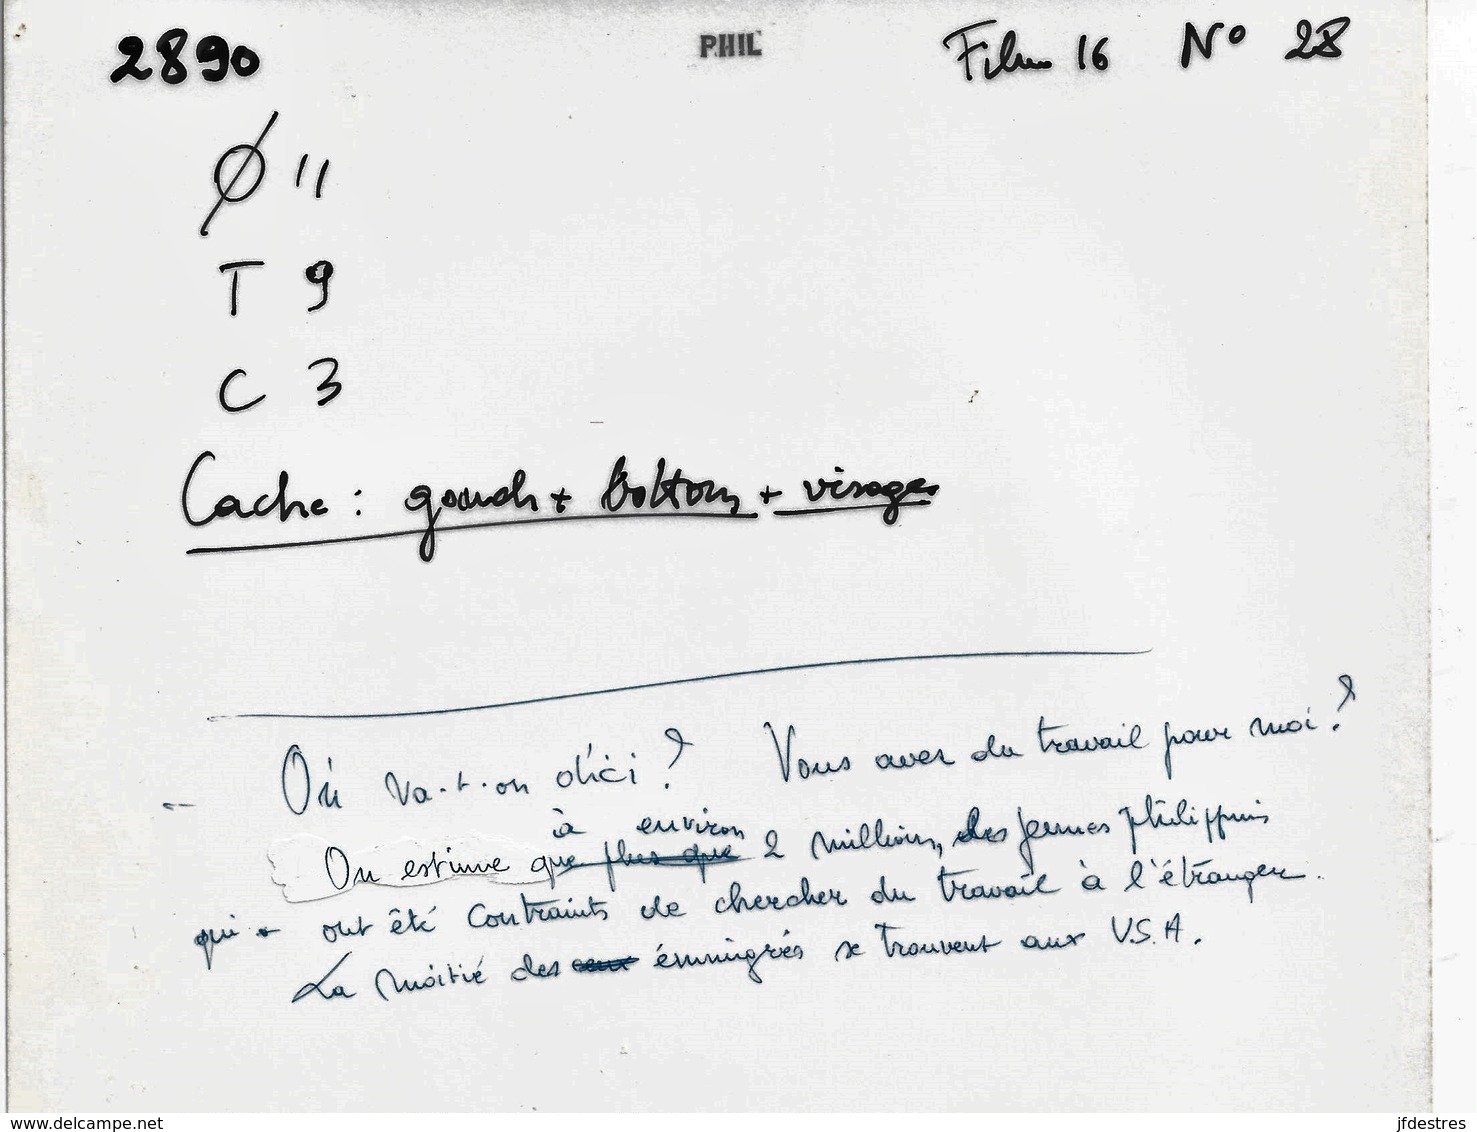 2890 PHIL Film 16 N° 28
Ø 11
T 9
C 3
Cache : gauch + bottom + visages
Où va-t-on d'ici ? Vous avez du travail pour moi ?
à environ
On estime que plus que 2 millions, des jeunes philippins
qui ont été contraints de chercher du travail à l'étranger.
La moitié des ceux émmigrés se trouvent aux U.S.A.
www.delcampe.net jfdestres